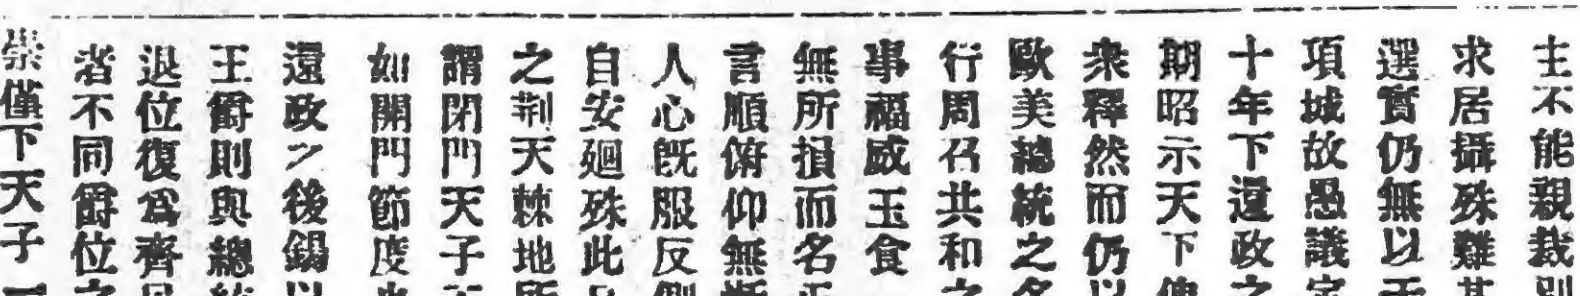 主不能親裁別
求居攝殊難其
選實仍無以
項城故愚議定
十年下還政之
期昭示天下俾
衆釋然而仍以
歐美總統之名
行周召共和之
事福威玉食
無所損而名正
言順俯仰無慚
人心旣服反側
自安廻殊此
之荆天棘地所
謂閉門天子
如開門節度
還政之後錫以
王爵則與總統
退位復爲齊民
者不同爵位之
崇僅下天子一